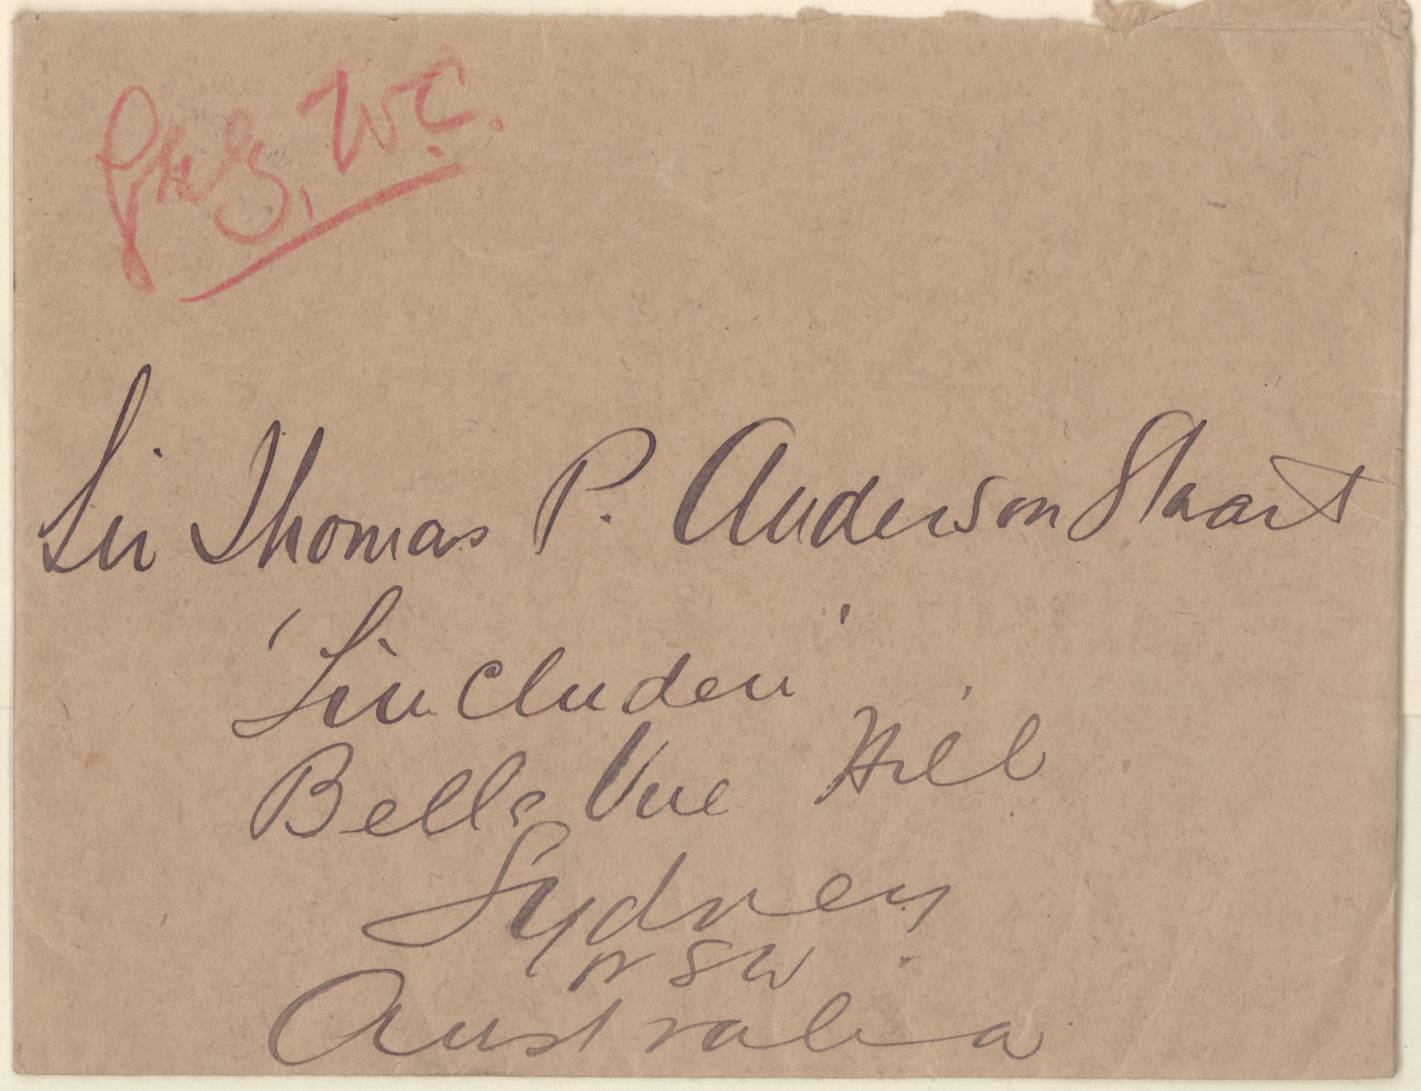 W.C.
Sir Thomas P. Anderson Stuart
'Lincluden'
Belle Vue Hill
Sydney
NSW
Australia